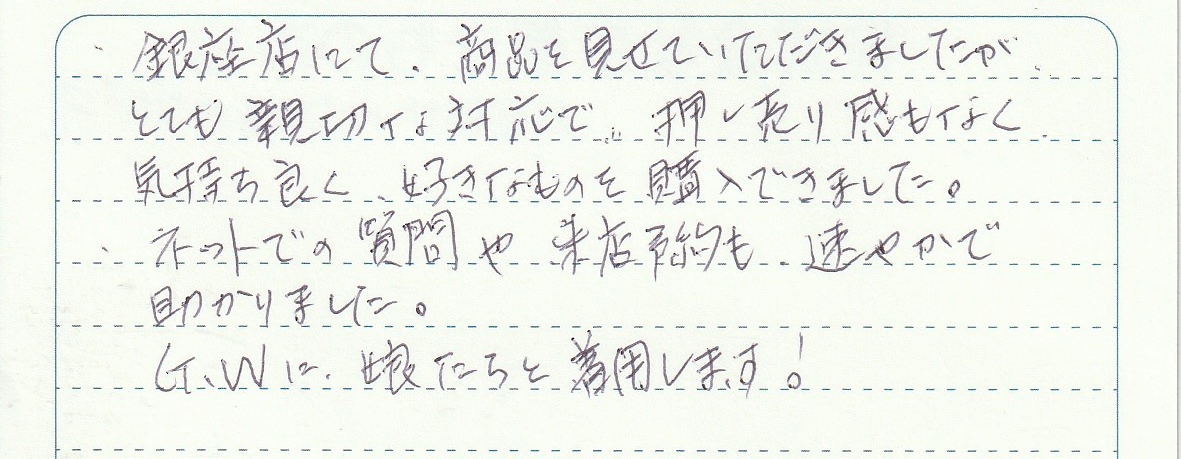 ・銀座店にて、商品を見せていただきましたが、
とても親切な対応で、押し売り感もなく、
気持ち良く、好きなものを購入できました。
・ネットでの質問や来店予約も、速やかで
助かりました。
G.Wに、娘たちと着用します!